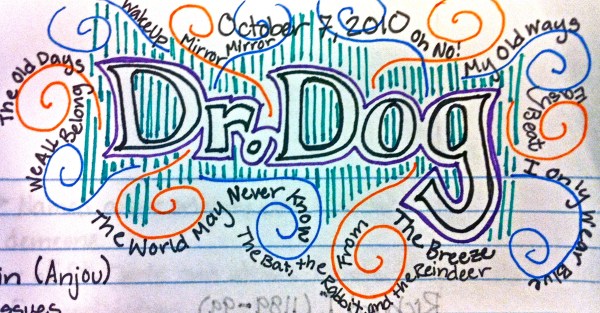 October 7, 2010
Wake Up
Mirror
Mirror
Oh No!
My Old Ways
The Old Days
Dr. Dog
Easy Beat
We All Belong
I only Wear Blue
The World May Never Know
The Bat, the Rabbit, and the Reindeer
From
The Breeze
in (Anjou)